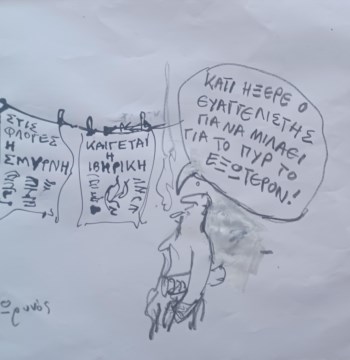 ΣΤΙΣ
ΦΛΟΓΕΣ
Η
ΣΜΥΡΝΗ
ΚΑΙΓΕΤΑΙ
Η
ΙΒΗΡΙΚΗ
ΚΑΤΙ ΗΞΕΡΕ Ο
ΕΥΑΓΓΕΛΙΣΤΗΣ
ΓΙΑ ΝΑ ΜΙΛΑΕΙ
ΓΙΑ ΤΟ ΠΥΡ ΤΟ
ΕΞΩΤΕΡΟΝ!